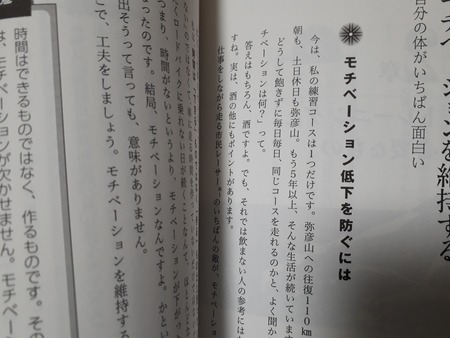 ションを維持する
自分の体がいちばん面白い
モチベーション低下を防ぐには
今は、私の練習コースは1つだけです。弥彦山への往復110km
朝も、土日休日も弥彦山。もう5年以上、そんな生活が続いています
どうして飽きずに毎日毎日、同じコースを走れるのかと、よく聞か
チベーションは何?」って。
答えはもちろん、酒ですよ。でも、それでは飲まない人の参考にはま
すね。実は、酒の他にもポイントがあります。
仕事をしながら走る市民レーサー。そのいちばんの敵が、モチベーシ
てロードバイクに乗れない日が続く
つまり、時間がないというより、モチベーションが下が
まったのです。結局、モチベーションなんですよ。かとい
出そうって言っても、意味がありません。
こで、工夫をしましょう。モチベーションを維持する
時間はできるものではなく、作るものです。その
は、モチベーションが欠かせません。モチベーシ